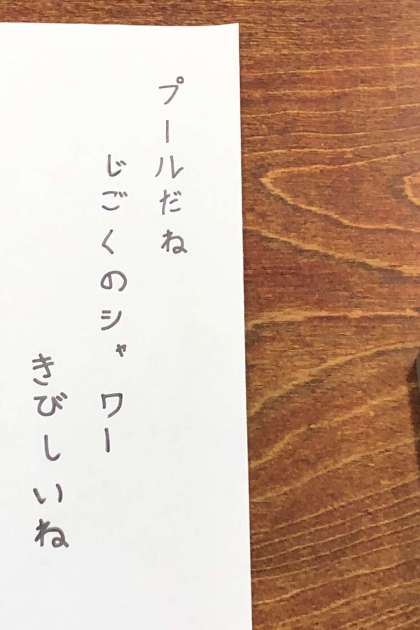 プールだね
じごくのシャワー
きびしいね